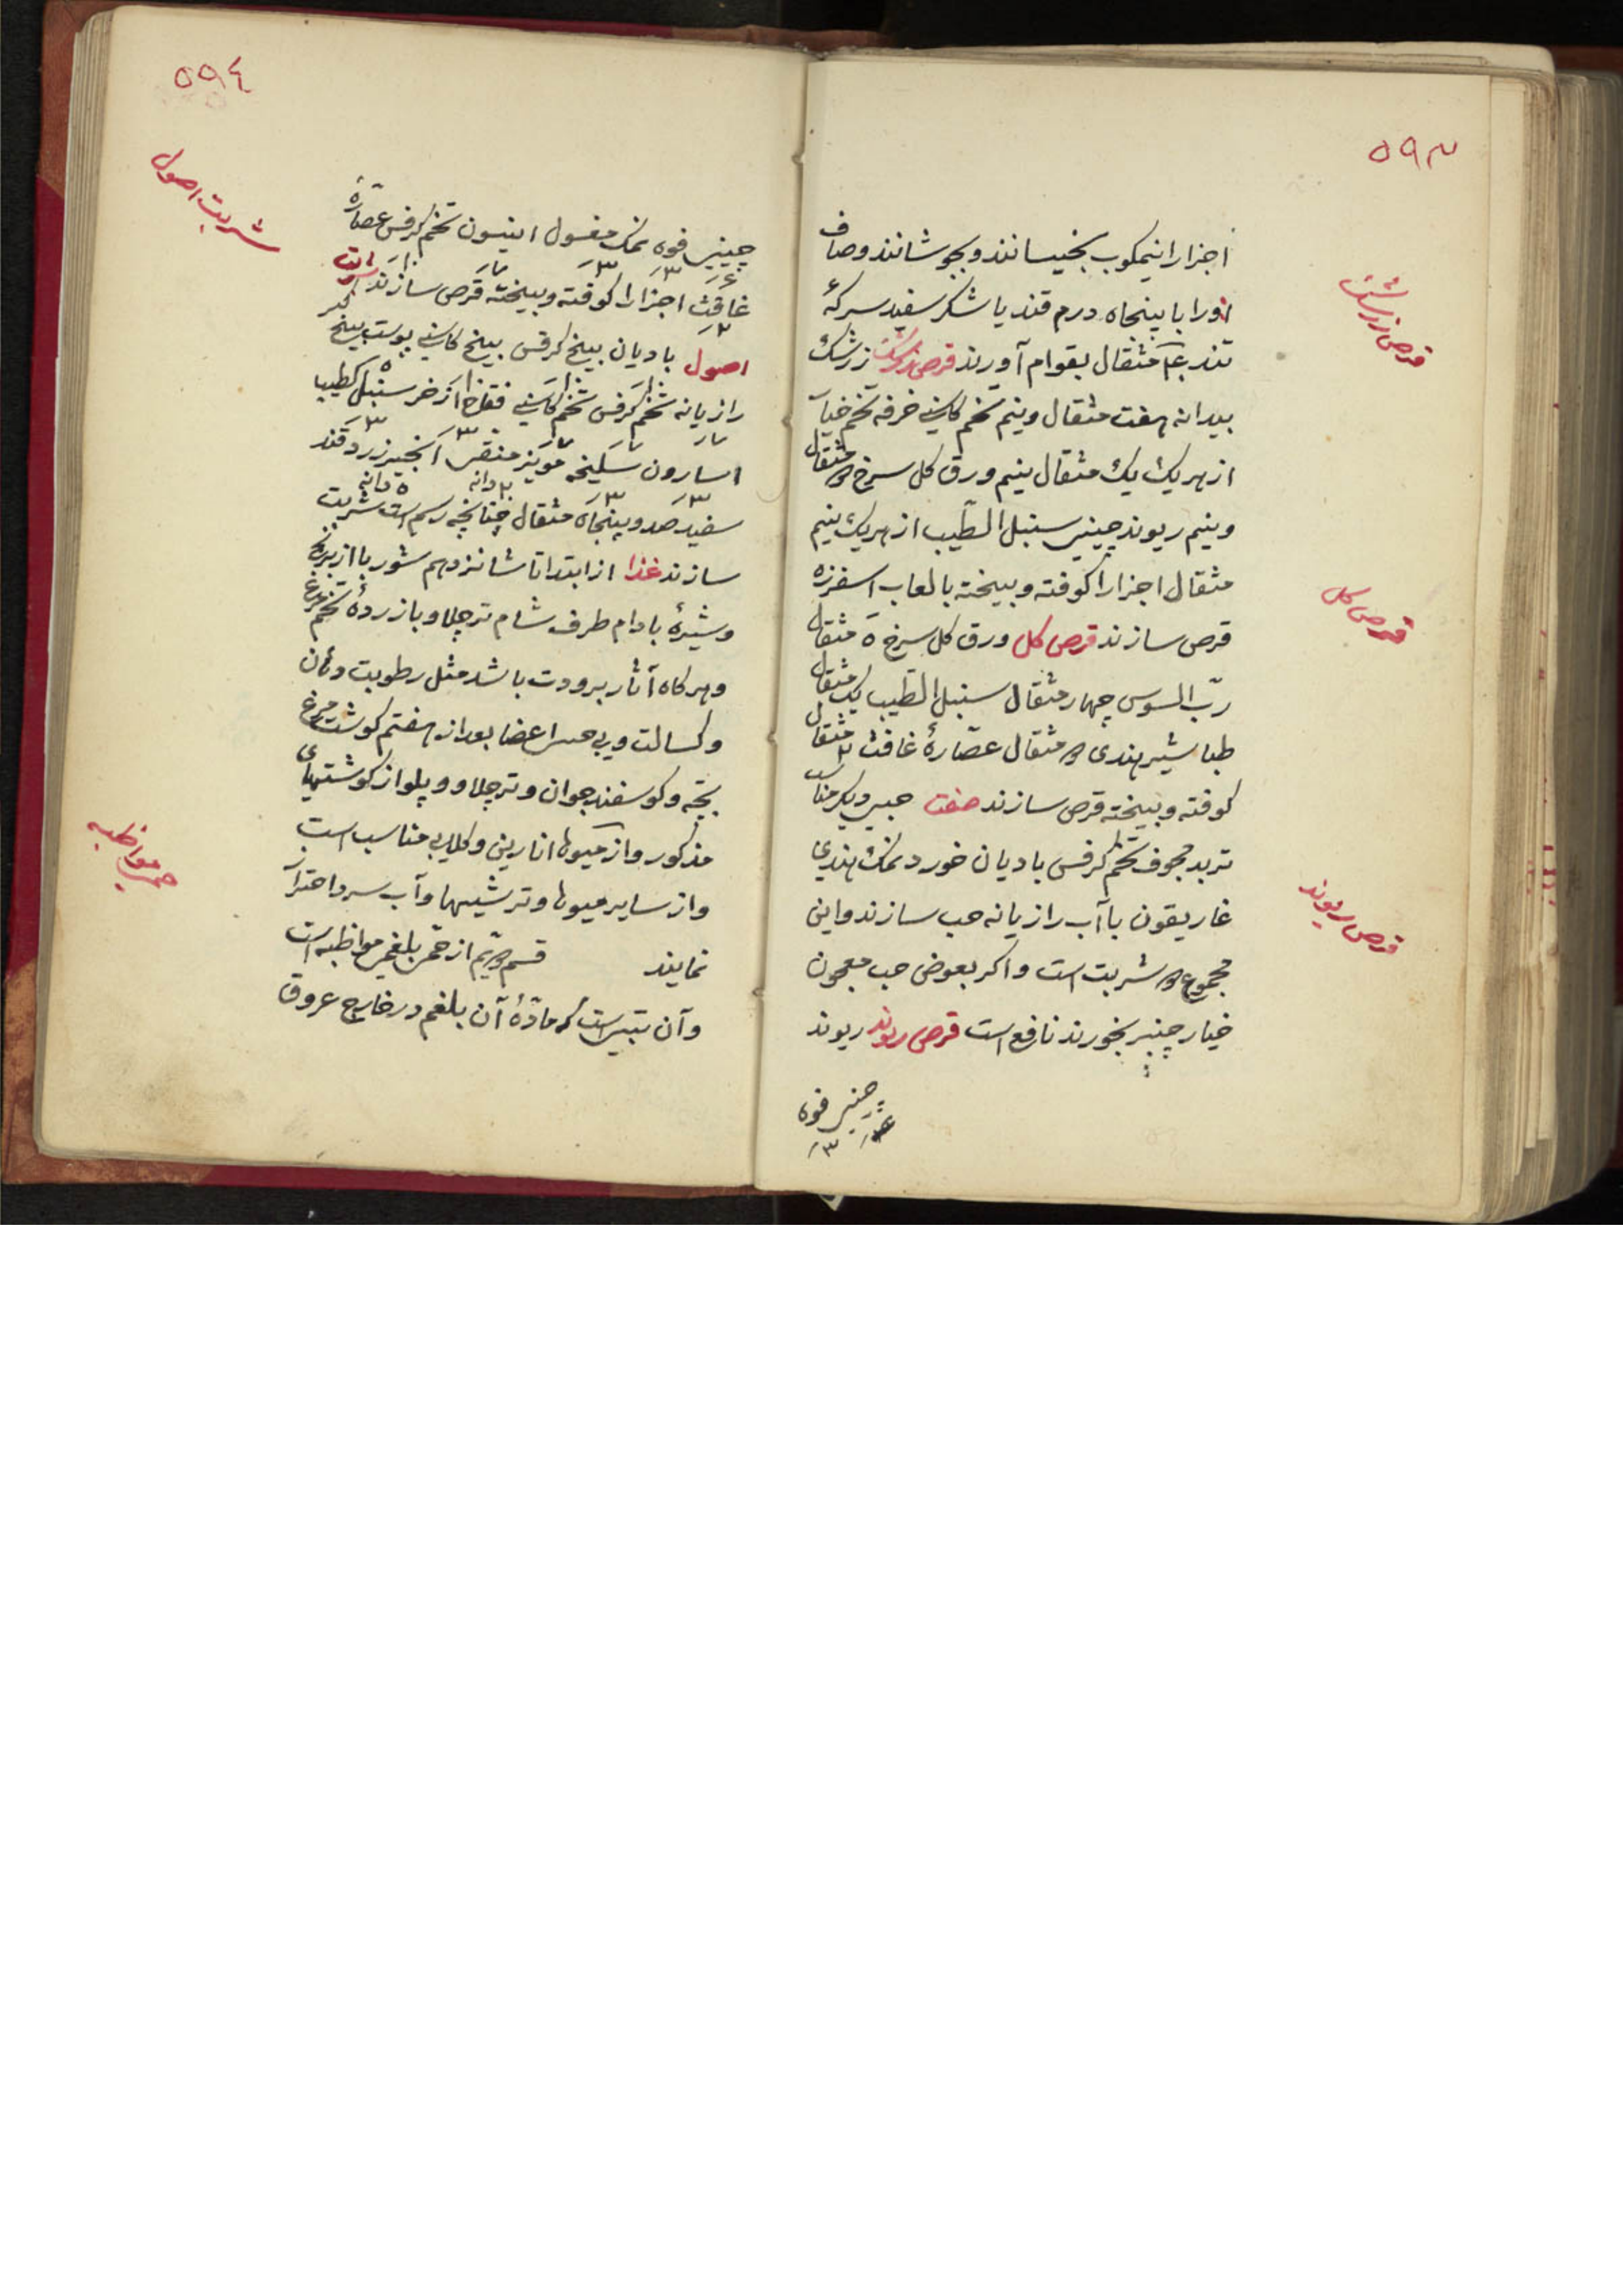 ۵۹۳
اجزا را نیمکوب بخیسانند و بجوشانند و صاف
او را با پنجاه درم قند یا شکر سفید سرکهٔ
تند مثقال بقوام آورند قرص زرشک زرشک
بیدانه هفت مثقال و نیم تخم کاسنی خرفه تخم خیار
از هر یک یک مثقال و نیم ورق کل سرخ مثقال
و نیم ریوند چینی سنبل الطّیب از هر یک نیم
مثقال اجزا را کوفته و بیخته با لعاب اسفرزه
قرص سازند قرص کل ورق کل سرخ ۵ مثقال
ربّ السوس چهار مثقال سنبل الطّیب یک مثقال
طباشیر هندی مثقال عصّارهٔ غافث ۲ مثقال
کوفته و بیخته قرص سازند صفت حبی دیکر مناسب
تربد مجوف تخم کرفس بادیان خورد نمک هندی
غاریقون با آب رازیانه حب سازند و این
مجموع شربت است و اکر بعوض حب معجون
خیار چنبر بخورند نافع است قرص ریوند ریوند
چینی فوه
قرص زرشک
قرص کل
قرص ریوند
۵۹٤
چینی فوه لک مغسول انیسون تخم کرفس عصّارهٔ
غافث اجزا را کوفته و بیخته قرص سازند شربت
اصول بادیان بیخ کرفس بیخ کاسنی پوست بیخ کبر
رازیانه تخم کرفس تخم کاسنی فقاح اذخر سنبل الطیب
اسارون سلیخه مویز منقی انجیر زرد قند
سفید صد و پنجاه مثقال چنانچه رسم است شربت
سازند غذا از ابتدا تا شانزدهم شوربا از برنج
و شیرهٔ بادام طرف شام تر چلاو با زردهٔ تخم مرغ
و هرکاه آثار برودت باشد مثل رطوبت دهان
و کسالت و بی حسی اعضا بعد از هفتم کوشت مرغ
بچّه و کوسفند جوان و تر چلاو و پلو از کوشتهای
مذکور و از میوها انارین و کلابی مناسب است
و از سایر میوها و ترشیها و آب سرد احتراز
نمایند قسم دویم از حمی بلغمی مواظبه است
و آن تبی است که مادّهٔ آن بلغم در خارج عروق
شربت اصول
حمی مواظبه